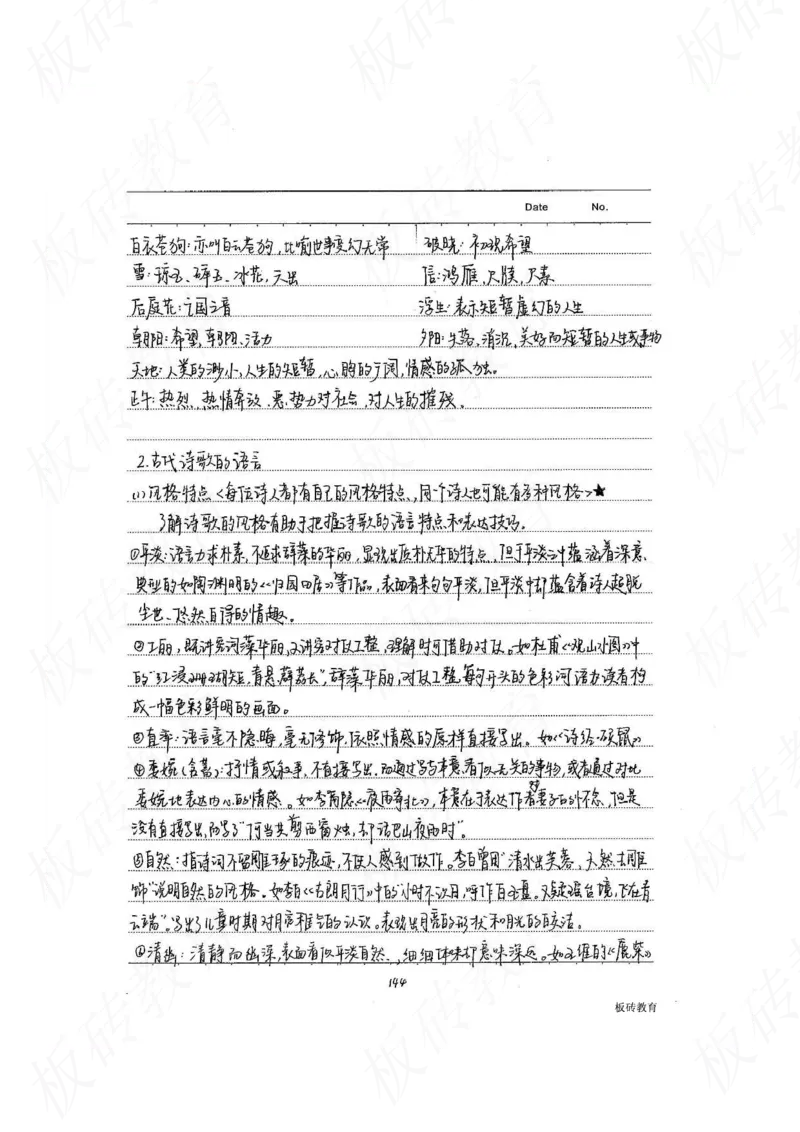 Date No.
白衣苍狗:亦叫白云苍狗,比喻世事变幻无常 破晓:初现希望
雪:琼玉、碎玉、冰花,天出 信:鸿雁,尺牍,尺素
后庭花:亡国之音 浮生:表示短暂虚幻的人生
朝阳:希望,朝阳、活力 夕阳:失落,消沉,美好而短暂的人生或事物
天地:人类的渺小,人生的短暂,心胸的广阔,情感的孤独。
正午:热烈,热情奔放、恶势力对社会,对人生的摧残。
2.古代诗歌的语言
(1)风格特点<每位诗人都有自己的风格特点,同一个诗人也可能有多种风格>★
了解诗歌的风格有助于把握诗歌的语言特点和表达技巧。
①平淡:语言力求朴素,不追求辞藻的华丽,显现出质朴无华的特点,但于平淡之中蕴涵着深意、
典型的如陶渊明的《归园田居》等作品,表面看来句句平淡,但平淡中却蕴含着诗人超脱
尘世、悠然自得的情趣。
②工丽,既讲究词藻华丽,又讲究对仗工整,理解时可借助对仗。如杜甫《观山水图》中
的"红浸珊瑚短,青悬薜荔长",辞藻华丽,对仗工整,每句开头的色彩词语为读者构
成一幅色彩鲜明的画面。
③直率:语言毫不隐晦,毫无修饰,依照情感的原样直接写出。如《诗经·硕鼠》
④委婉(含蓄):抒情或叙事,不直接写出,而通过写与本意看似无关的事物,或者通过对比
委婉地表达内心的情感。如李商隐《夜雨寄北》,本意在于表达作者对妻子的怀念,但是
没有直接写出,而写了"何当共剪西窗烛,却话巴山夜雨时"。
⑤自然:指诗词不留雕琢的痕迹,不使人感到做作。李白曾曰"清水出芙蓉,天然去雕
饰"说明自然的风格。如李白《古朗月行》中的"小时不识月,呼作白玉盘。又疑瑶台镜,飞在青
云端"。写出了儿童时期对月亮稚气的认识。表现出月亮的形状和月光的皎洁。
⑥清幽:清静而幽深,表面看似平淡自然、,细细体味却意味深远。如王维的《鹿柴》
144
板砖教育